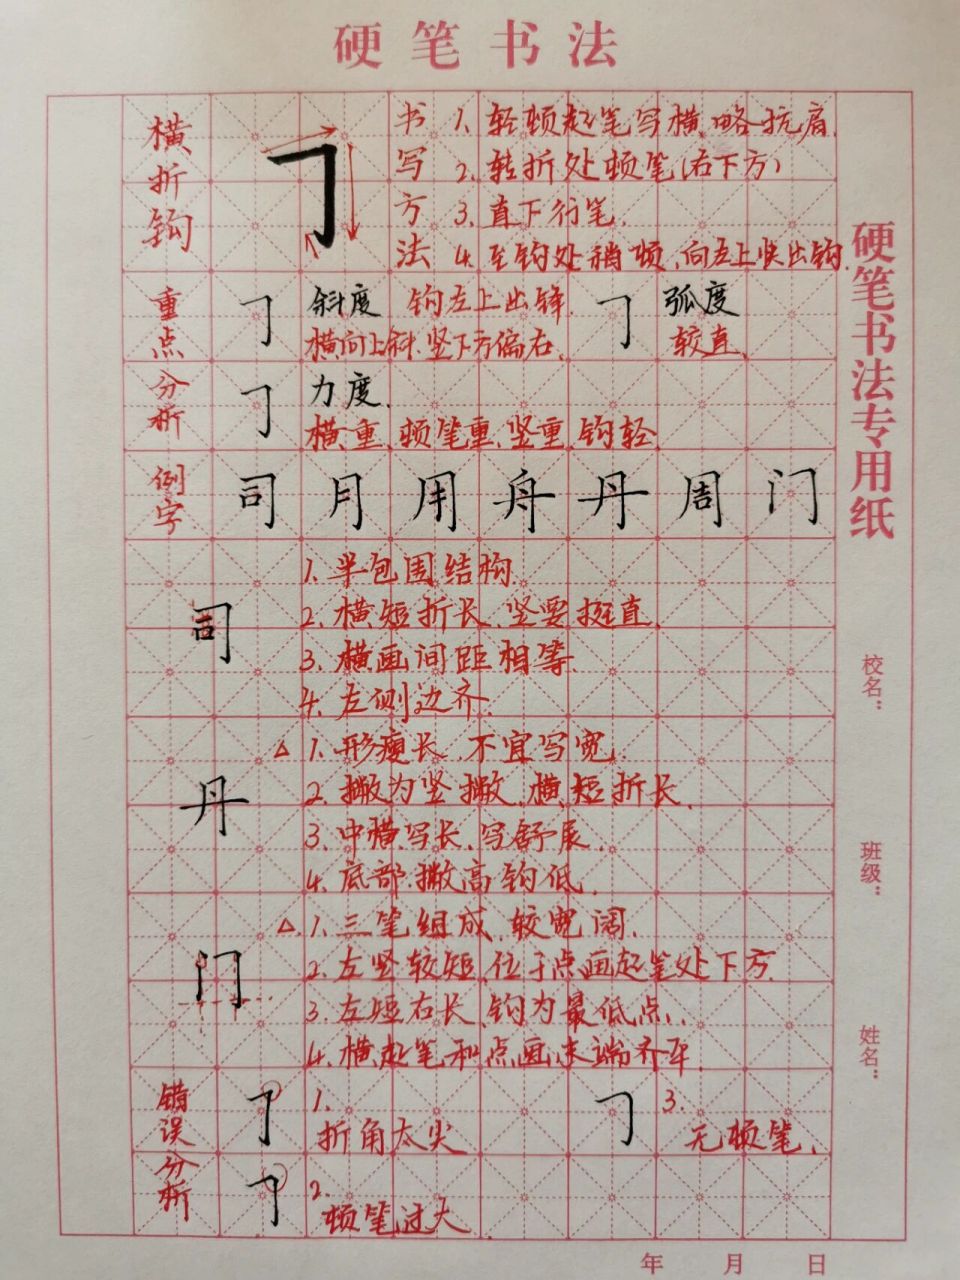 硬笔书法
横折钩
书写方法
1. 轻顿起笔写横,略抗肩.
2. 转折处顿笔(右下方)
3. 直下行笔.
4. 至钩处稍顿,向左上快出钩.
重点分析
斜度 钩左上出锋.
横向上斜.竖下方偏右.
弧度
较直.
力度.
横重、顿笔重、竖重、钩轻.
例字
司 月 用 舟 丹 周 门
司
1. 半包围结构
2. 横短折长,竖要挺直.
3. 横画间距相等.
4. 左侧边齐.
丹
△ 1. 形瘦长,不宜写宽
2. 撇为竖撇,横短折长.
3. 中横写长,写舒展.
4. 底部撇高钩低.
门
△ 1. 三笔组成,较宽阔.
2. 左竖较短,位于点画起笔处下方.
3. 左短右长,钩为最低点.
4. 横起笔和点画末端齐平.
错误分析
1.
折角太尖
2.
顿笔过大
3.
无顿笔.
硬笔书法专用纸
校名：
班级：
姓名：
年 月 日